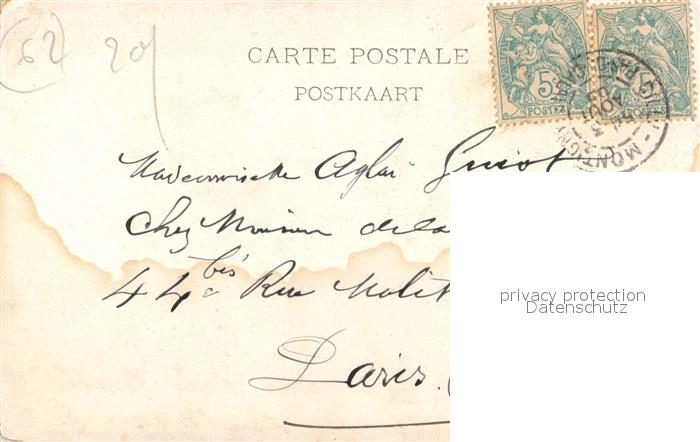 (62 20f
CARTE POSTALE
POSTKAART
5c 5c
POSTES POSTES
MONTIGNY
Mademoiselle Aglaé Guiot
Chez Monsieur dela
44 bis Rue Molit
Paris.
privacy protection
Datenschutz